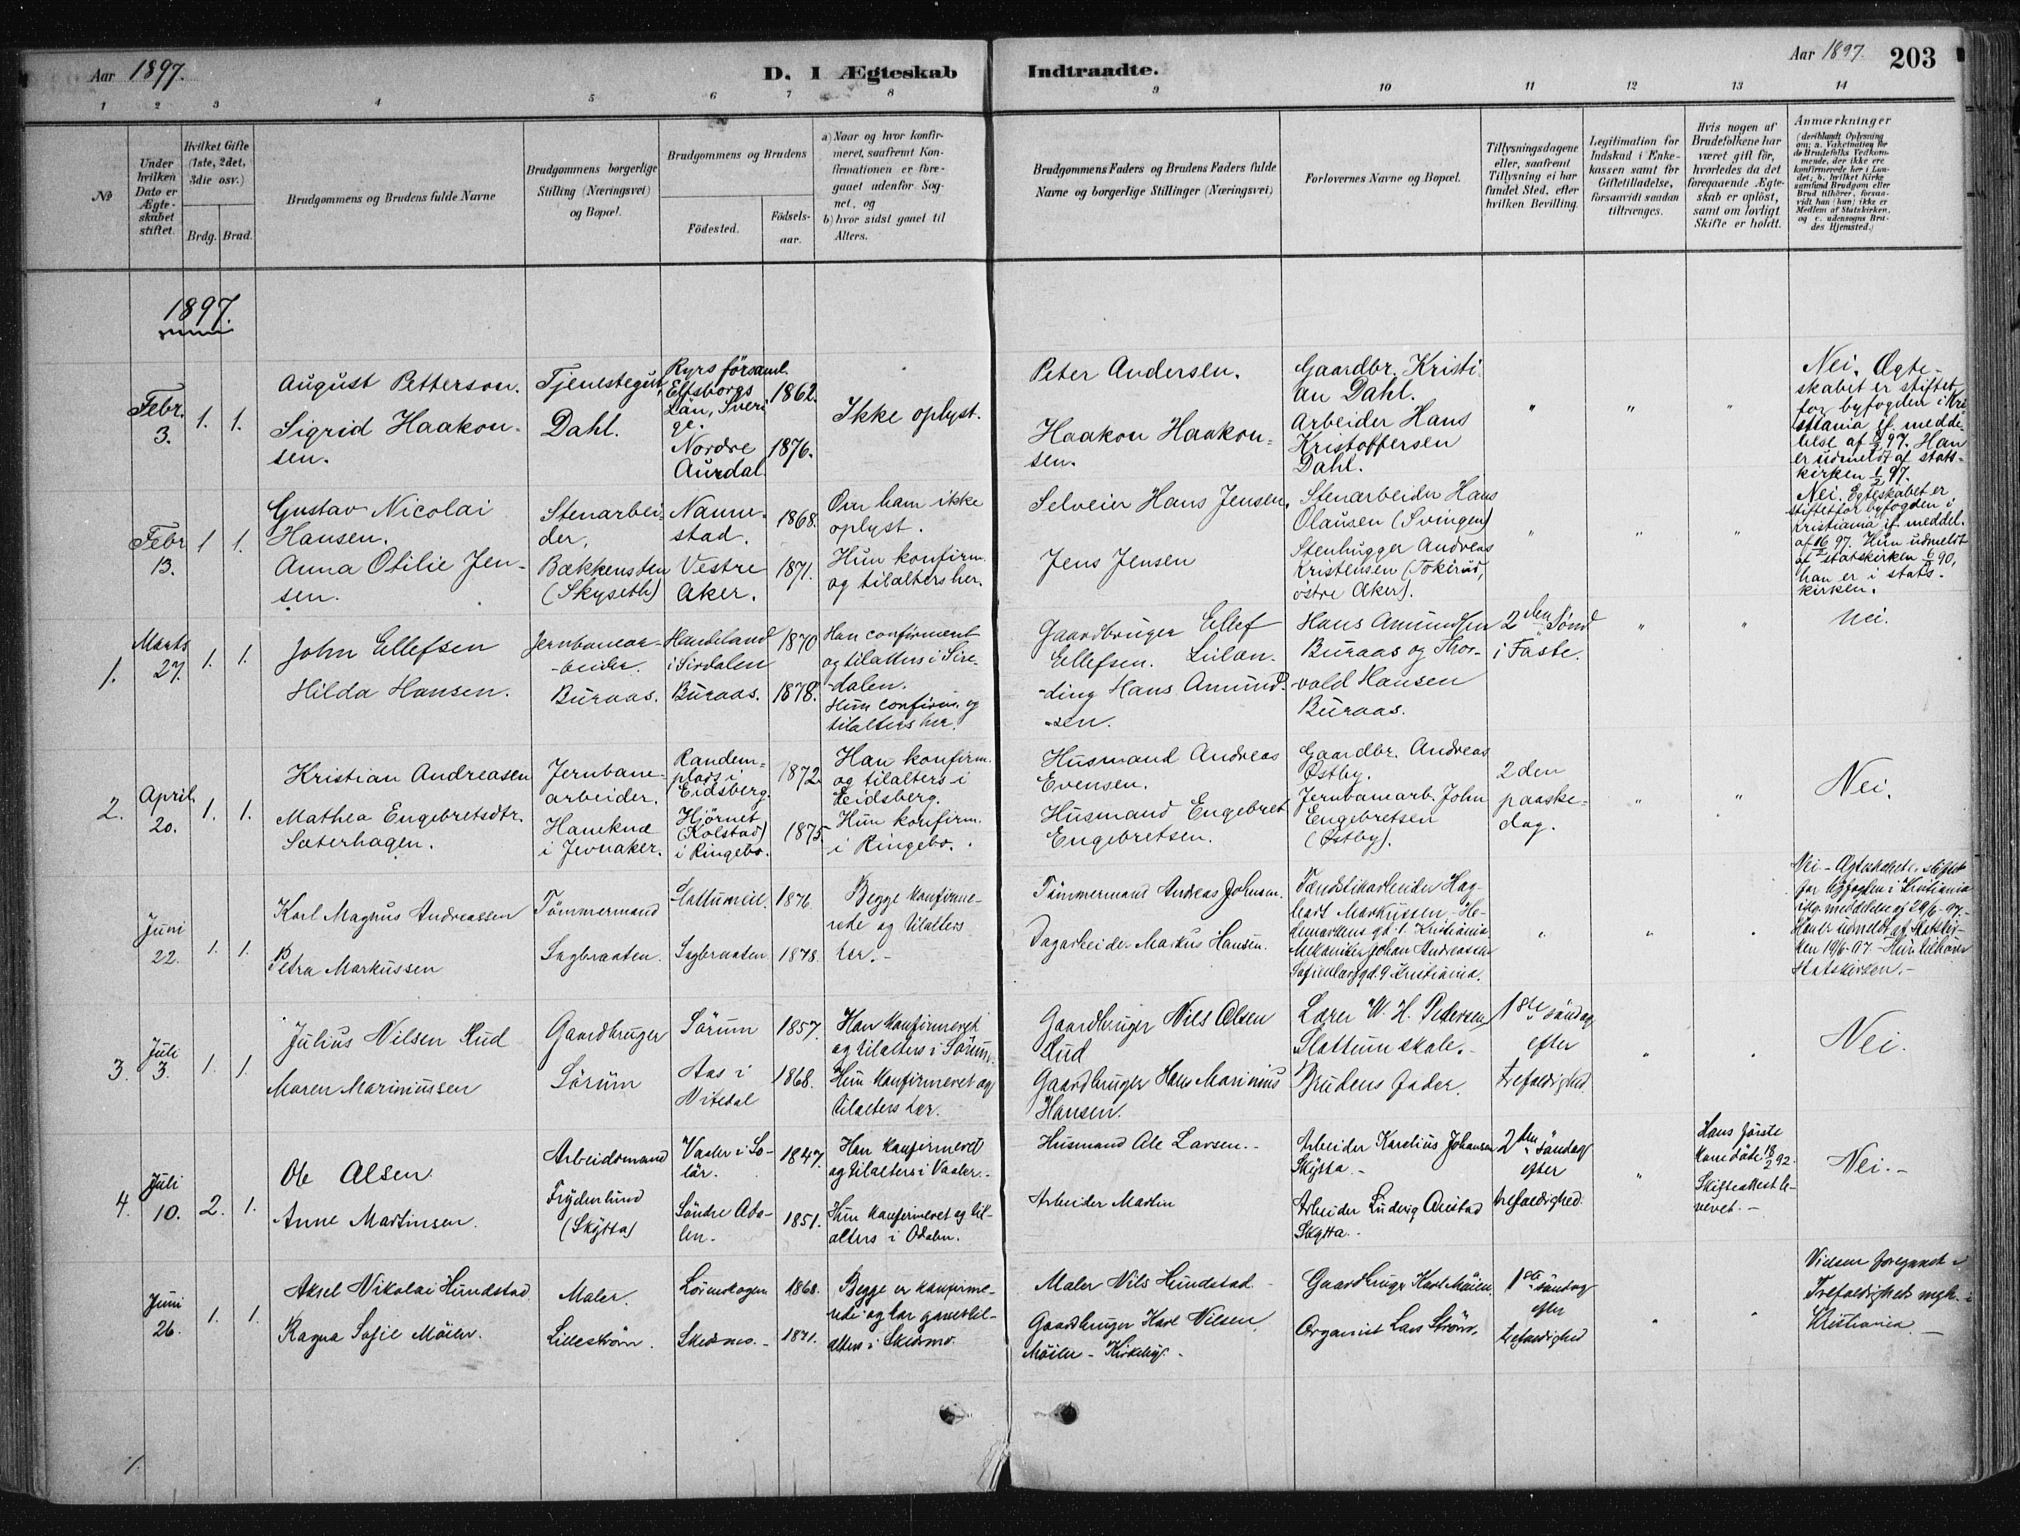 Aar 1897.
D. I Ægteskab
Indtraadte.
Aar 1897.
203
1 2 3 4 5 6 7 8 9 10 11 12 13 14
No
Under
hvilken
Dato er
Ægte-
skabet
stiftet.
Hvilket Gifte
(1ste, 2det,
3die osv.)
Brdg. Brud.
Brudgommens og Brudens fulde Navne
Brudgommens borgerlige
Stilling (Næringsvei)
og Bopæl.
Brudgommens og Brudens
Födested.
Födsels-
aar.
a) Naar og hvor konfir-
meret, saafremt Kon-
firmationen er fore-
gaaet udenfor Sog-
net, og
b) hvor sidst gaaet til
Alters.
Brudgommens Faders og Brudens Faders fulde
Navne og borgerlige Stillinger (Næringsvei)
Forlovernes Navne og Bopæl.
Tillysningsdagene
eller, saafremt
Tillysning ei har
fundet Sted, efter
hvilken Bevilling.
Legitimation for
Indskud i Enke-
kassen samt for
Giftetilladelse,
forsaavidt saadan
tiltrænges.
Hvis nogen af
Brudefolkene har
været gift för,
hvorledes da det
foregaaende Ægte-
skab er oplöst,
samt om lovligt
Skifte er holdt.
Anmærkninger
(deriblandt Oplysning
om: a. Vakcination for
de Brudefolks Vedkom-
mende, der ikke ere
konfirmerede her i Lan-
det; b. hvilket Kirke-
samfund Brudgom eller
Brud tilhörer, forsaa-
vidt han (hun) ikke er
Medlem af Statskirken,
og c. udensogns Bru-
des Hjemsted.)
1897.
Febr.
3.
1. 1.
August Petterson.
Sigrid Haakon-
sen.
Tjenestegut,
Dahl.
Ryrs församl.
Elfsborgs
Län, Sveri
ge.
Nordre
Aurdal
1862.
1876.
Ikke oplyst.
Peter Andersen.
Haakon Haakon-
sen.
Gaardbr. Kristi
an Dahl.
Arbeider Hans
Kristoffersen
Dahl.
" " "
Nei. Ægte-
skabet er stiftet
for byfogden i Kri-
stiania if. medde-
lelse af 3/2 97. Han
er udmeldt af stats-
kirken 1/2 97.
Febr
13.
1 1.
Gustav Nicolai
Hansen.
Anna Otilie Jen-
sen.
Stenarbei-
der,
Bækkensten
(Skyseth)
Nanne-
stad.
Vestre
Aker.
1868.
1871.
Om ham ikke
oplyst.
Hun konfirm.
og tilalters her.
Selveier Hans Jensen,
Jens Jensen
Stenarbeider Hans
Olausen (Svingen)
Stenhugger Andreas
Kristensen (Tokerud,
östre Aker).
" " "
Nei. Egteskabet er
stiftet for byfogden i
Kristiania if. meddel.
af 16/2 97. Hun udmeldt
af statskirken 6/6 90,
han er i stats-
kirken.
1.
Marts
27.
1. 1.
John Ellefsen
Hilda Hansen.
Jernbanear-
beider.
Buraas.
Haudeland
i Sirdalen
Buraas.
1870
1878.
Han confirmert
og tilalters i Sire-
dalen.
Hun confirm. og
tilalters her.
Gaardbruger Ellef
Ellefsen. Lulan.
ding Hans Amund-
sen.
Hans Amundsen
Buraas og Thor-
vald Hansen
Buraas.
2den Sönd
i Faste.
" "
Nei.
2.
April
20.
1. 1.
Kristian Andreasen
Mathea Engebretsdtr.
Sæterhagen.
Jernbane-
arbeider.
Haneknæ
i Jevnaker.
Randem-
plads i
Eidsberg.
Hjörnet
(Kolstad)
i Ringebo.
1872
1875.
Han konfirm.
og tilalters i
Eidsberg.
Hun konfirm.
i Ringebo.
Husmand Andreas
Evensen.
Husmand Engebret
Engebretsen.
Gaardbr. Andreas
Østby.
Jernbanearb. John
Engebretsen
(Østby).
2den
paaske-
dag.
" "
Nei.
Juni
22.
1. 1.
Karl Magnus Andreassen
Petra Markussen
Tömmermand
Sagbraaten.
Slattumeie.
Sagbraaten
1876
1878.
Begge konfirme-
rede og tilalters
her.-
Tömmermand Andreas Johnsen.
Dagarbeider Markus Hansen.
Fændstikarbeider Hag-
bart Markussen - He-
demarkens gd. 1. Kristiania
Mekaniker Johan Andreasen
Sofienberggd. 9. Kristiania.
" " "
Nei - Ægteskabet er stiftet
for byfogden i Kristiania
ifölg. meddelelse af 29/6-97.-
Han er udmeldt af Statskir-
ken 19/6-97. - Hun tilhörer
Statskirken. -
3.
Juli
3.
1. 1.
Julius Nilsen Rud
Maren Marinussen
Gaardbruger
Sörum
Sörum
Aas i
Nitedal
1857.
1868.
Han konfirmeret
og tilalters i Sörum.
Hun konfirmeret og
tilalters her.
Gaardbruger Nils Olsen
Rud
Gaardbruger Hans Marinius
Hansen.
Lærer W. H. Petersen
Slattum skole.-
Brudens fader.
1ste söndag
efter
trefoldighed.
" "
Nei.
4.
Juli
10.
2. 1.
Ole Olsen
Anne Martinsen.
Arbeidsmand
Frydenlund
(Skytta)
Vaaler i So-
lör.
Söndre Oda-
len.
1847.
1851.
Han konfirmeret
og tilalters i Vaaler.-
Hun konfirmeret og til-
alters i Odalen.
Husmand Ole Larsen.-
Arbeider Martin
Arbeider Karelius Johansen
Skytta.-
Arbeider Ludvig Onstad
Skytta.
2den söndag
efter
trefoldighed
"
Hans förste
kone döde 18/2 92.
Skifteattest le-
veret.-
Nei.-
Juni
26.
1. 1.
Aksel Nikolai Hundstad
Ragna Sofie Möier.
Maler.
Lilleström.
Lörenskogen
Skedsmo.-
1868.
1871.
Begge er konfirme-
rede og har gaaet til-
alters i Skedsmo.
Maler Nils Hundstad
Gaardbruger Karl Nilsen
Möier - Kirkeby.-
Gaardbruger Karl Möier.
Organist Lars Ström.
1ste söndag
efter
trefoldighed
" "
Vielsen foregaaet i
Trefoldigheds mgh. i
Kristiania.-